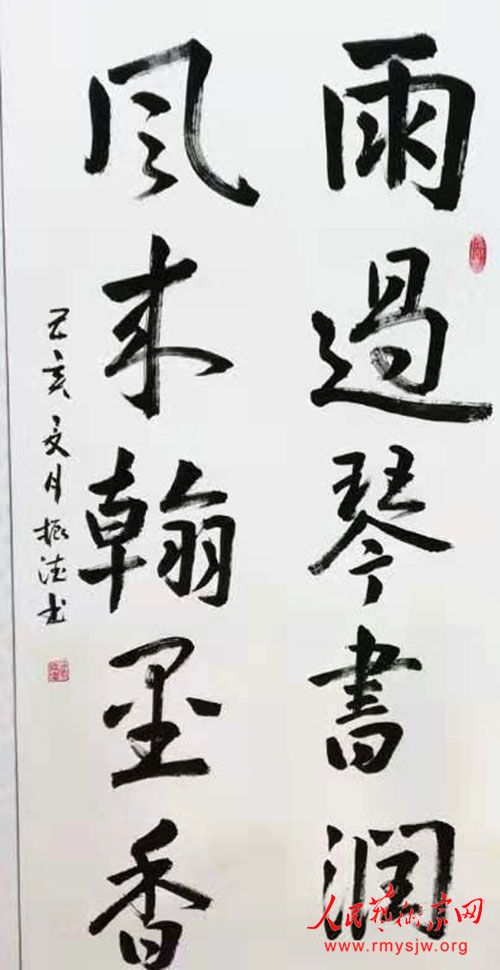 雨過琴書潤
风来翰墨香
己亥夏月振法书
人民艺术京网
www.rmysjw.org